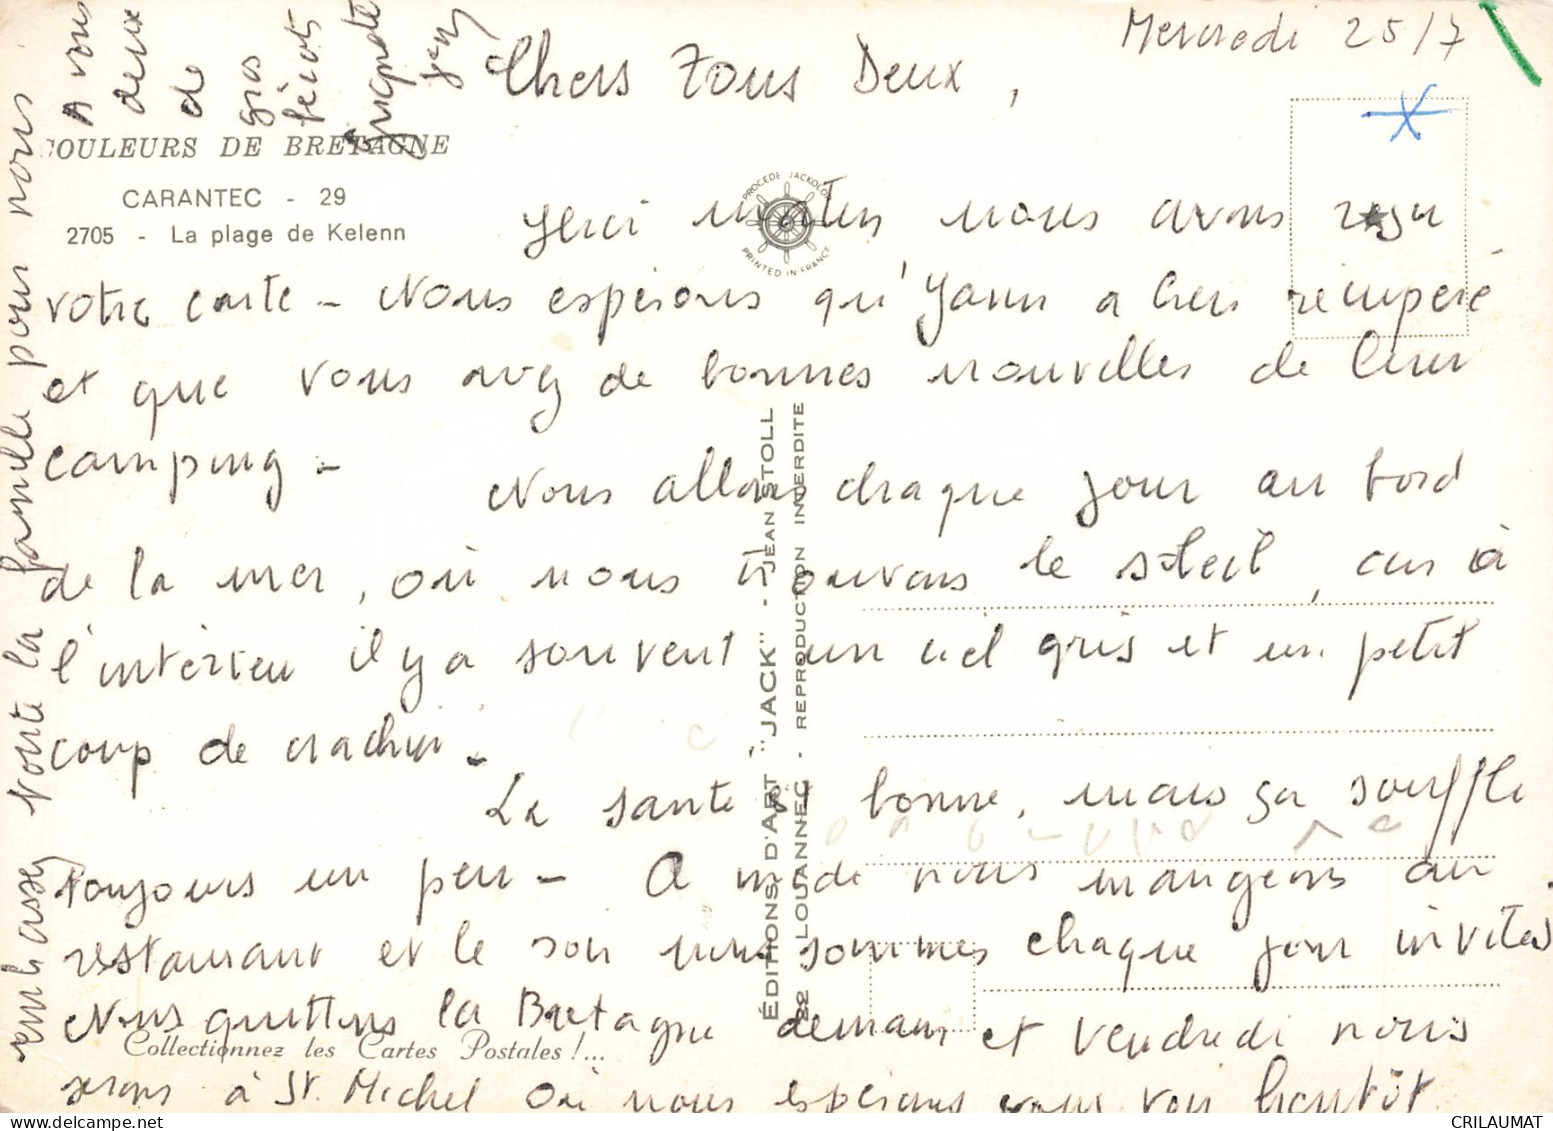 Mercredi 25/7
Chers Tous Deux,
COULEURS DE BRETAGNE
CARANTEC - 29
2705 - La plage de Kelenn
PROCEDE JACKOLOR
PRINTED IN FRANCE
matin nous avons reçu
votre carte - Nous espérons qu'Yann a bien récupéré
et que vous avez de bonnes nouvelles de leur
camping -
Nous allons chaque jour au bord
de la mer, où nous trouvons le soleil, car à
l'intérieu il y a souvent un ciel gris et un petit
coup de crachin -
La santé est bonne, mais ça souffle
toujours un peu - A midi nous mangeons au
restaurant et le soir nous sommes chaque jour invités
Nous quittons la Bretagne demain et vendredi nous
serons à St. Michel où nous espérons vous voir bientôt
embrassez toute la famille pour nous
A vous
deux
de
gros
bécots
ÉDITIONS D'ART "JACK" - JEAN STOLL
22 LOUANNEC - REPRODUCTION INTERDITE
Collectionnez les Cartes Postales !...
CRILAUMAT